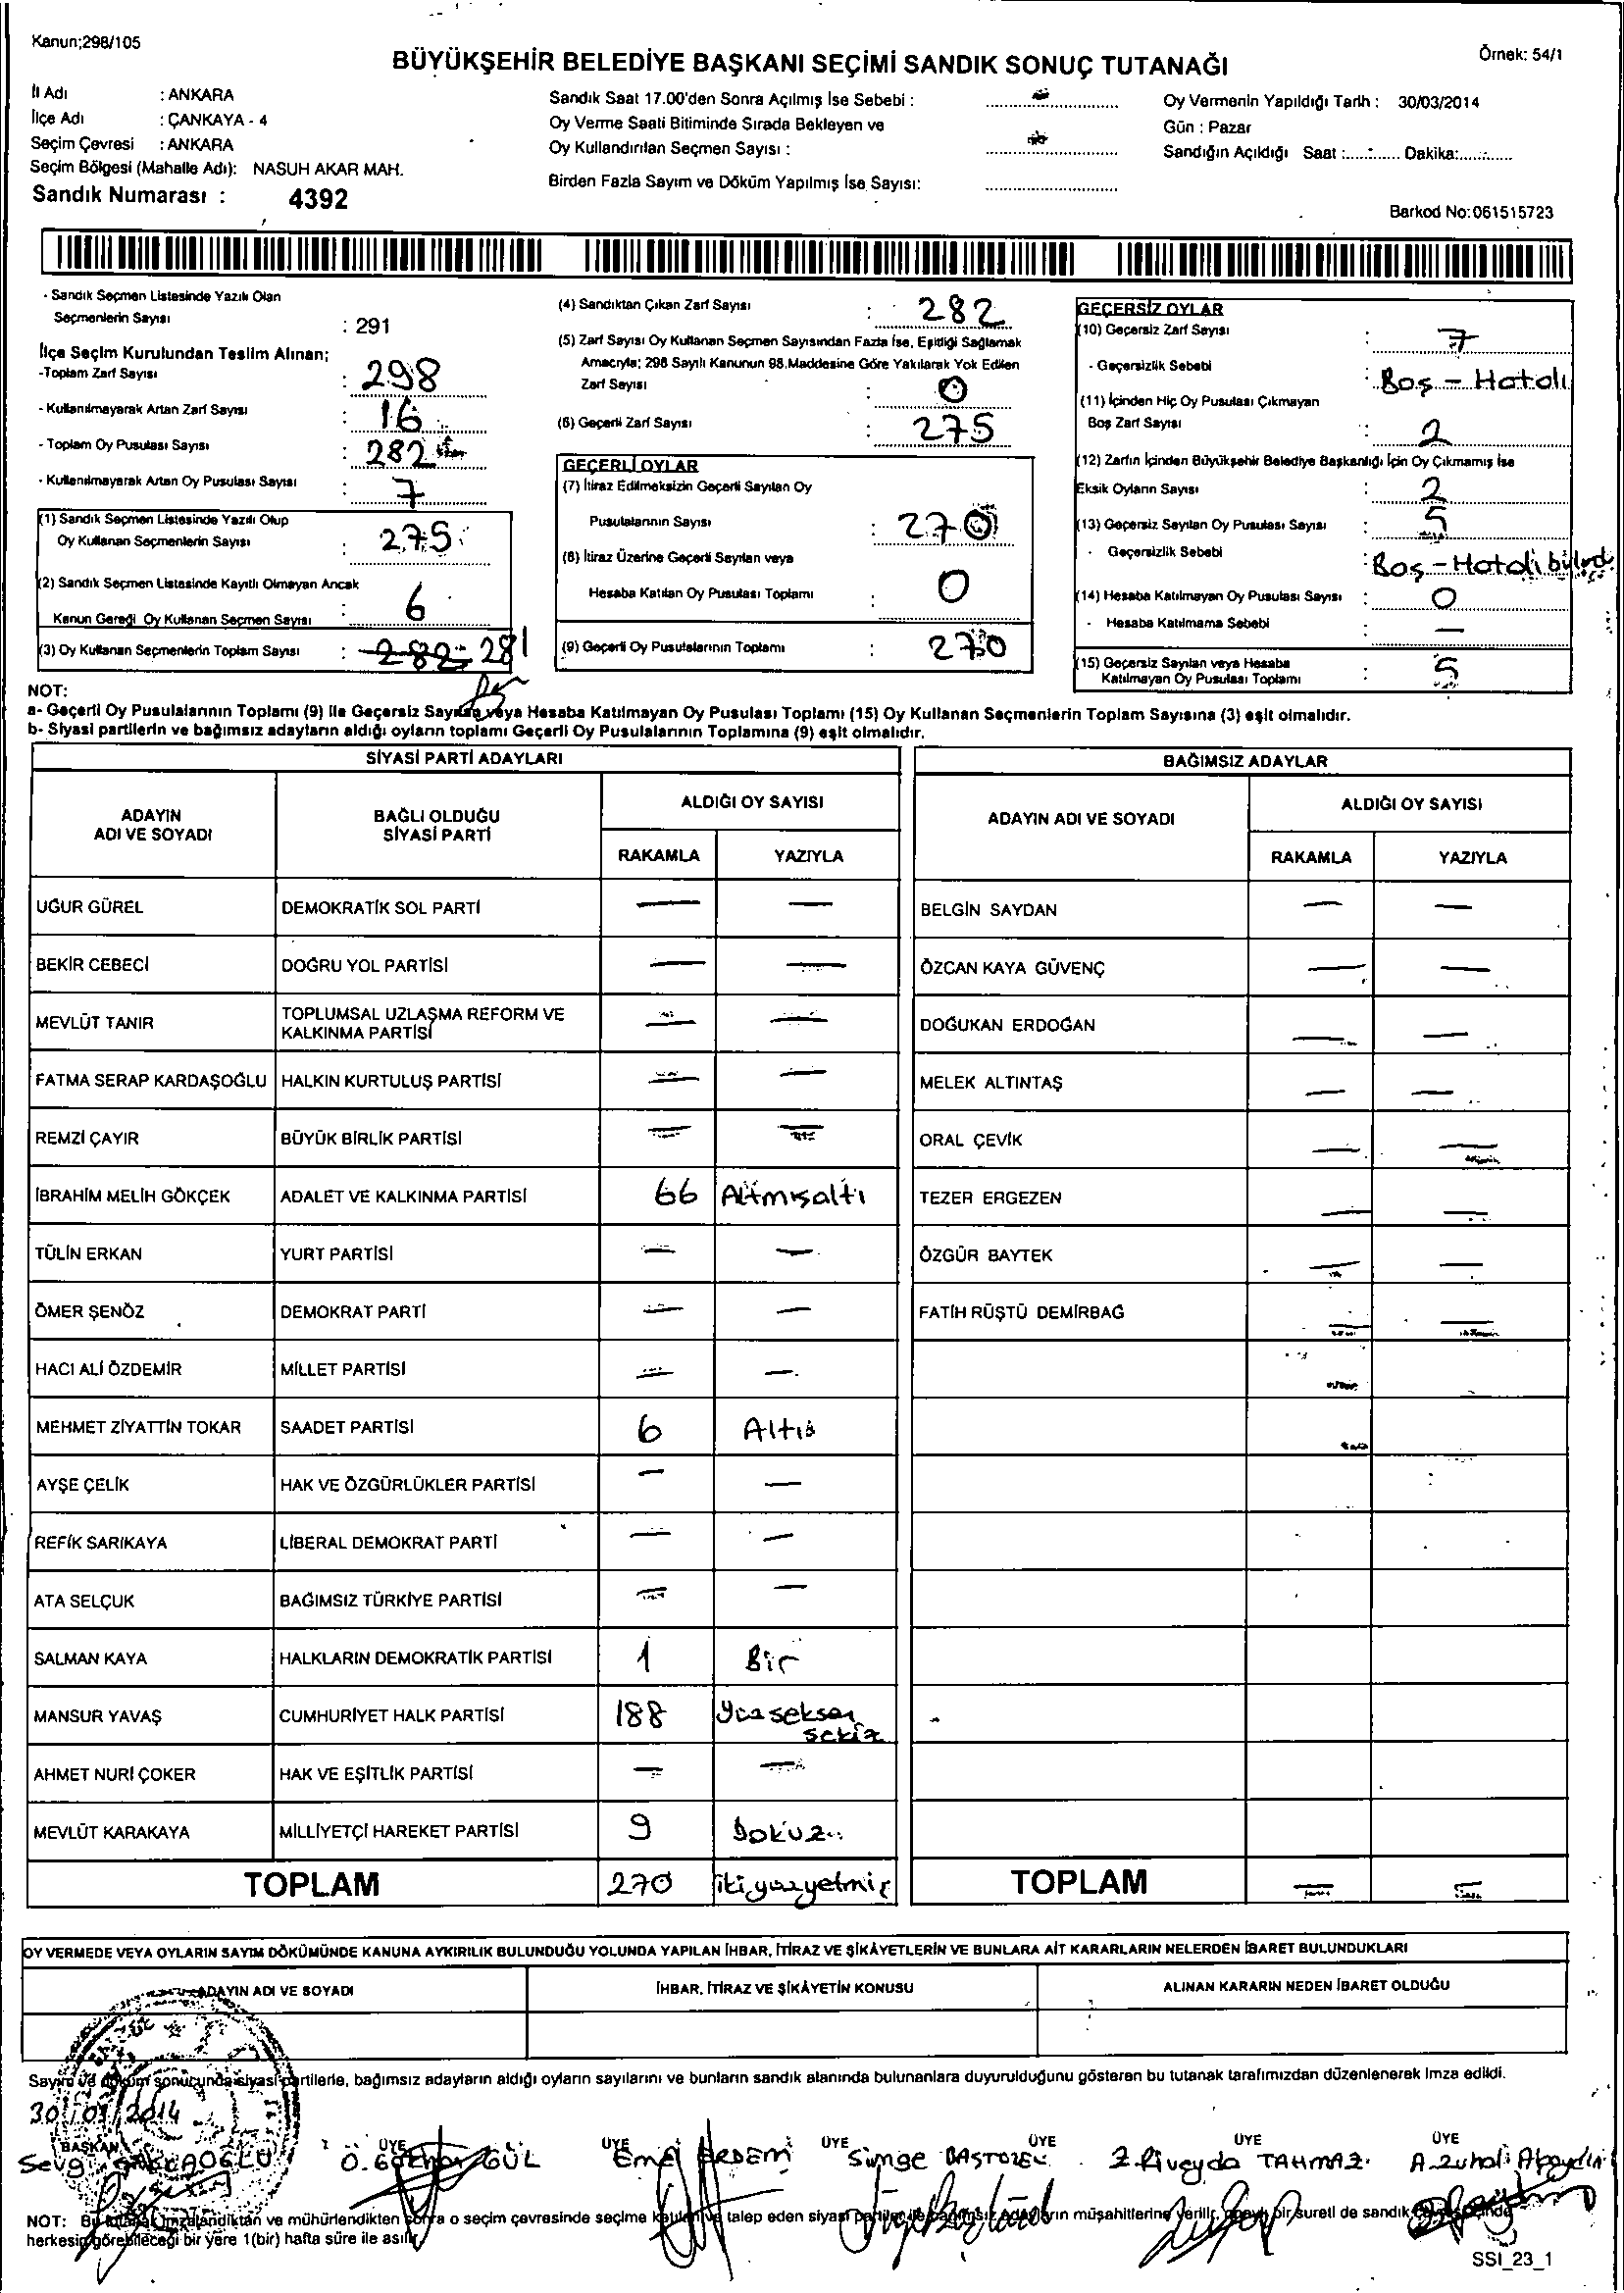 Kanun;298/105
Örnek: 54/1
BÜYÜKŞEHİR BELEDİYE BAŞKANI SEÇİMİ SANDIK SONUÇ TUTANAĞI
İl Adı : ANKARA
İlçe Adı : ÇANKAYA - 4
Seçim Çevresi : ANKARA
Seçim Bölgesi (Mahalle Adı): NASUH AKAR MAH.
Sandık Numarası : 4392
Sandık Saat 17.00'den Sonra Açılmış İse Sebebi :
Oy Verme Saati Bitiminde Sırada Bekleyen ve
Oy Kullandırılan Seçmen Sayısı :
Birden Fazla Sayım ve Döküm Yapılmış İse Sayısı:
Oy Vermenin Yapıldığı Tarih : 30/03/2014
Gün : Pazar
Sandığın Açıldığı Saat :............ Dakika:............
Barkod No:061515723
- Sandık Seçmen Listesinde Yazılı Olan
Seçmenlerin Sayısı : 291
İlçe Seçim Kurulundan Teslim Alınan;
-Toplam Zarf Sayısı : 298
- Kullanılmayarak Artan Zarf Sayısı : 16
- Toplam Oy Pusulası Sayısı : 282
- Kullanılmayarak Artan Oy Pusulası Sayısı : 7
(1) Sandık Seçmen Listesinde Yazılı Olup
Oy Kullanan Seçmenlerin Sayısı : 275
(2) Sandık Seçmen Listesinde Kayıtlı Olmayan Ancak
Kanun Gereği Oy Kullanan Seçmen Sayısı : 6
(3) Oy Kullanan Seçmenlerin Toplam Sayısı : 282 281
(4) Sandıktan Çıkan Zarf Sayısı : 282
(5) Zarf Sayısı Oy Kullanan Seçmen Sayısından Fazla İse, Eşitliği Sağlamak
Amacıyla; 298 Sayılı Kanunun 98.Maddesine Göre Yakılarak Yok Edilen
Zarf Sayısı : 0
(6) Geçerli Zarf Sayısı : 275
GEÇERLİ OYLAR
(7) İtiraz Edilmeksizin Geçerli Sayılan Oy
Pusulalarının Sayısı : 270
(8) İtiraz Üzerine Geçerli Sayılan veya
Hesaba Katılan Oy Pusulası Toplamı : 0
(9) Geçerli Oy Pusulalarının Toplamı : 270
GEÇERSİZ OYLAR
(10) Geçersiz Zarf Sayısı : 7
- Geçersizlik Sebebi : Boş - Hatalı
(11) İçinden Hiç Oy Pusulası Çıkmayan
Boş Zarf Sayısı : 2
(12) Zarfın İçinden Büyükşehir Belediye Başkanlığı İçin Oy Çıkmamış İse
Eksik Oyların Sayısı : 2
(13) Geçersiz Sayılan Oy Pusulası Sayısı : 5
- Geçersizlik Sebebi : Boş - Hatalı
(14) Hesaba Katılmayan Oy Pusulası Sayısı : 0
- Hesaba Katılmama Sebebi : —
(15) Geçersiz Sayılan veya Hesaba
Katılmayan Oy Pusulası Toplamı : 5
NOT:
a- Geçerli Oy Pusulalarının Toplamı (9) ile Geçersiz Sayılan veya Hesaba Katılmayan Oy Pusulası Toplamı (15) Oy Kullanan Seçmenlerin Toplam Sayısına (3) eşit olmalıdır.
b- Siyasi partilerin ve bağımsız adayların aldığı oyların toplamı Geçerli Oy Pusulalarının Toplamına (9) eşit olmalıdır.
SİYASİ PARTİ ADAYLARI
ADAYIN ADI VE SOYADI BAĞLI OLDUĞU SİYASİ PARTİ ALDIĞI OY SAYISI
RAKAMLA YAZIYLA
UĞUR GÜREL DEMOKRATİK SOL PARTİ — —
BEKİR CEBECİ DOĞRU YOL PARTİSİ — —
MEVLÜT TANIR TOPLUMSAL UZLAŞMA REFORM VE KALKINMA PARTİSİ — —
FATMA SERAP KARDAŞOĞLU HALKIN KURTULUŞ PARTİSİ — —
REMZİ ÇAYIR BÜYÜK BİRLİK PARTİSİ — —
İBRAHİM MELİH GÖKÇEK ADALET VE KALKINMA PARTİSİ 66 Altmışaltı
TÜLİN ERKAN YURT PARTİSİ — —
ÖMER ŞENÖZ DEMOKRAT PARTİ — —
HACI ALİ ÖZDEMİR MİLLET PARTİSİ — —
MEHMET ZİYATTİN TOKAR SAADET PARTİSİ 6 Altı
AYŞE ÇELİK HAK VE ÖZGÜRLÜKLER PARTİSİ — —
REFİK SARIKAYA LİBERAL DEMOKRAT PARTİ — —
ATA SELÇUK BAĞIMSIZ TÜRKİYE PARTİSİ — —
SALMAN KAYA HALKLARIN DEMOKRATİK PARTİSİ 1 Bir
MANSUR YAVAŞ CUMHURİYET HALK PARTİSİ 188 Yüzseksen sekiz
AHMET NURİ ÇOKER HAK VE EŞİTLİK PARTİSİ — —
MEVLÜT KARAKAYA MİLLİYETÇİ HAREKET PARTİSİ 9 Dokuz
TOPLAM 270 ikiyüzyetmiş
BAĞIMSIZ ADAYLAR
ADAYIN ADI VE SOYADI ALDIĞI OY SAYISI
RAKAMLA YAZIYLA
BELGİN SAYDAN — —
ÖZCAN KAYA GÜVENÇ — —
DOĞUKAN ERDOĞAN — —
MELEK ALTINTAŞ — —
ORAL ÇEVİK — —
TEZER ERGEZEN — —
ÖZGÜR BAYTEK — —
FATİH RÜŞTÜ DEMİRBAĞ — —
TOPLAM — —
OY VERMEDE VEYA OYLARIN SAYIM DÖKÜMÜNDE KANUNA AYKIRILIK BULUNDUĞU YOLUNDA YAPILAN İHBAR, İTİRAZ VE ŞİKÂYETLERİN VE BUNLARA AİT KARARLARIN NELERDEN İBARET BULUNDUKLARI
ADAYIN ADI VE SOYADI İHBAR, İTİRAZ VE ŞİKÂYETİN KONUSU ALINAN KARARIN NEDEN İBARET OLDUĞU
Sayım ve döküm sonucunda siyasi partilerle, bağımsız adayların aldığı oyların sayılarını ve bunların sandık alanında bulunanlara duyurulduğunu gösteren bu tutanak tarafımızdan düzenlenerek imza edildi.
30/03/2014
BAŞKAN ÜYE ÜYE ÜYE ÜYE ÜYE ÜYE
Ö. GÜL Emel ERDEM Simge Z. Rüveyda TAHMAZ A. Zuhal
NOT: Bu tutanak imzalandıktan ve mühürlendikten sonra o seçim çevresinde seçime katılan ve talep eden siyasi partiler ile bağımsız adayların müşahitlerine verilir, onaylı bir sureti de sandık
herkesin görebileceği bir yere 1(bir) hafta süre ile asılır.
SSI_23_1